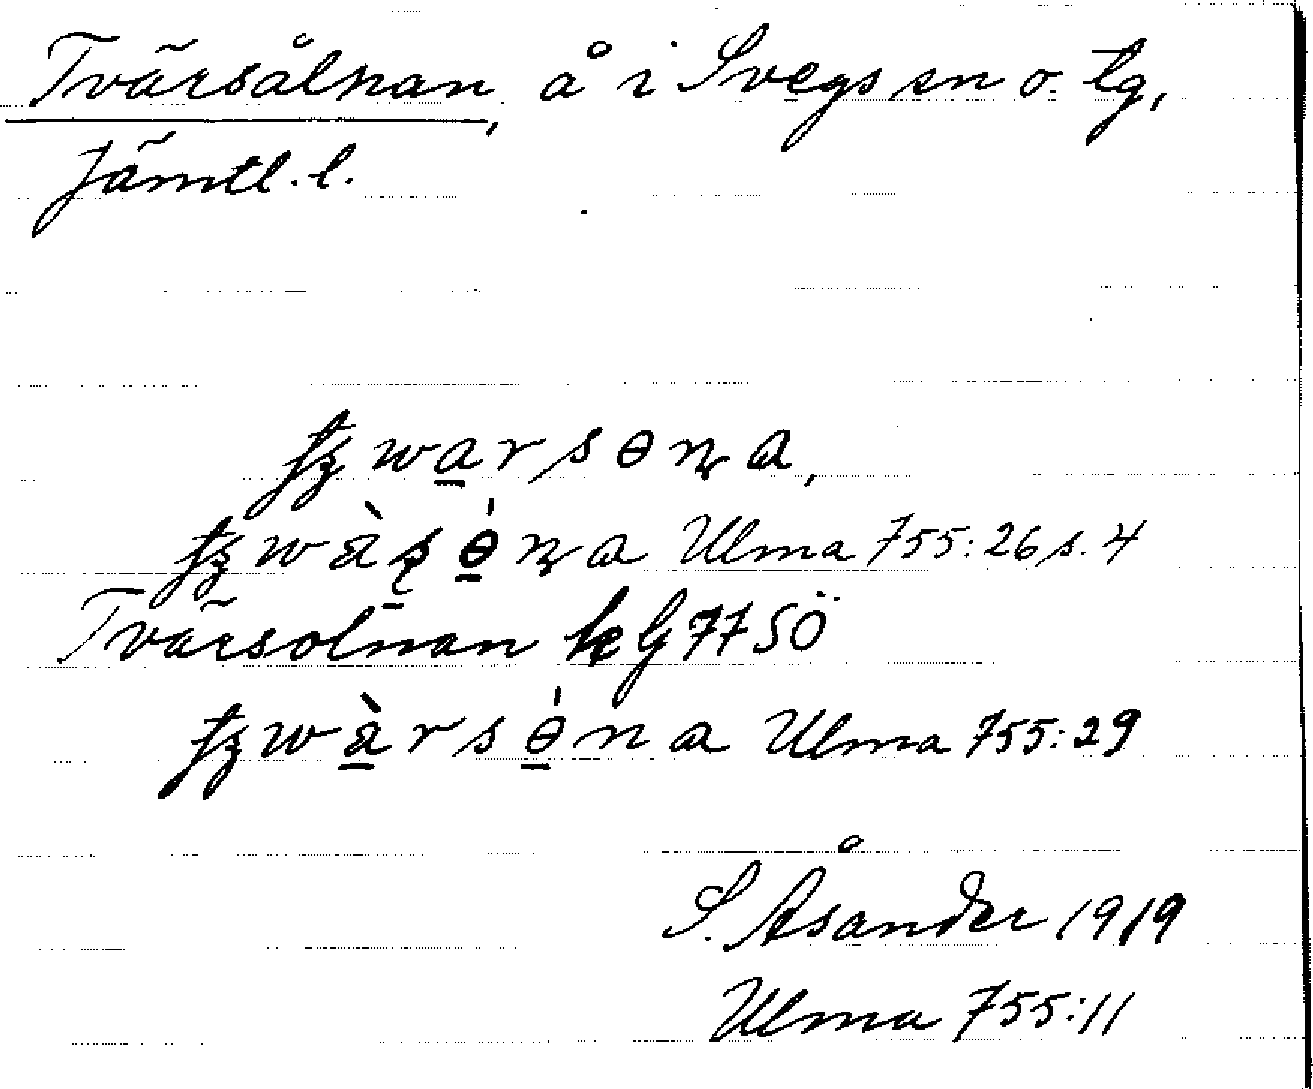 Tvärsålnan, å i Svegs sn o. tg,
Jämtl. l.
twarsɵna,
twàsɵ́na Ulma 755:26 s. 4
Tvärsolnan 77 SÖ
twàrsɵ́na Ulma 755:29
S. Åsander 1919
Ulma 755:11